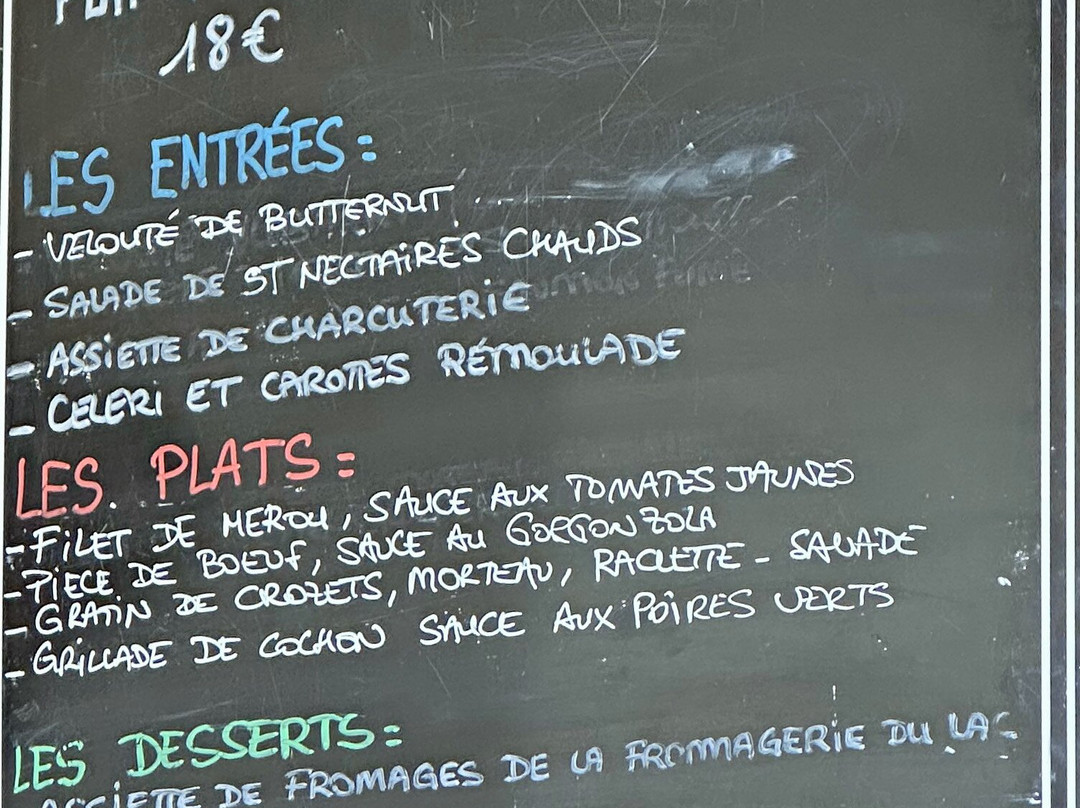 18€
LES ENTRÉES:
- VELOUTÉ DE BUTTERNUT
- SALADE DE ST NECTAIRES CHAUDS
- ASSIETTE DE CHARCUTERIE
- CELERI ET CAROTTES RÉMOULADE
LES PLATS:
- FILET DE MEROU, SAUCE AUX TOMATES JAUNES
- PIECE DE BOEUF, SAUCE AU GORGONZOLA
- GRATIN DE CROZETS, MORTEAU, RACLETTE - SALADE
- GRILLADE DE COCHON SAUCE AUX POIRES VERTS
LES DESSERTS:
ASSIETTE DE FROMAGES DE LA FROMMAGERIE DU LAC